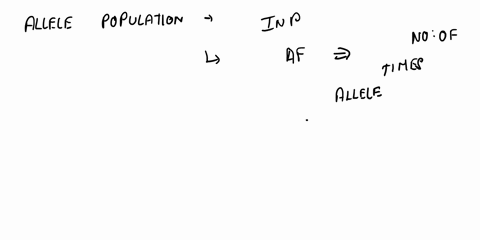 ALLELE POPULATION → IND
↳ AF ⇒ NO: OF
TIMES
ALLELE